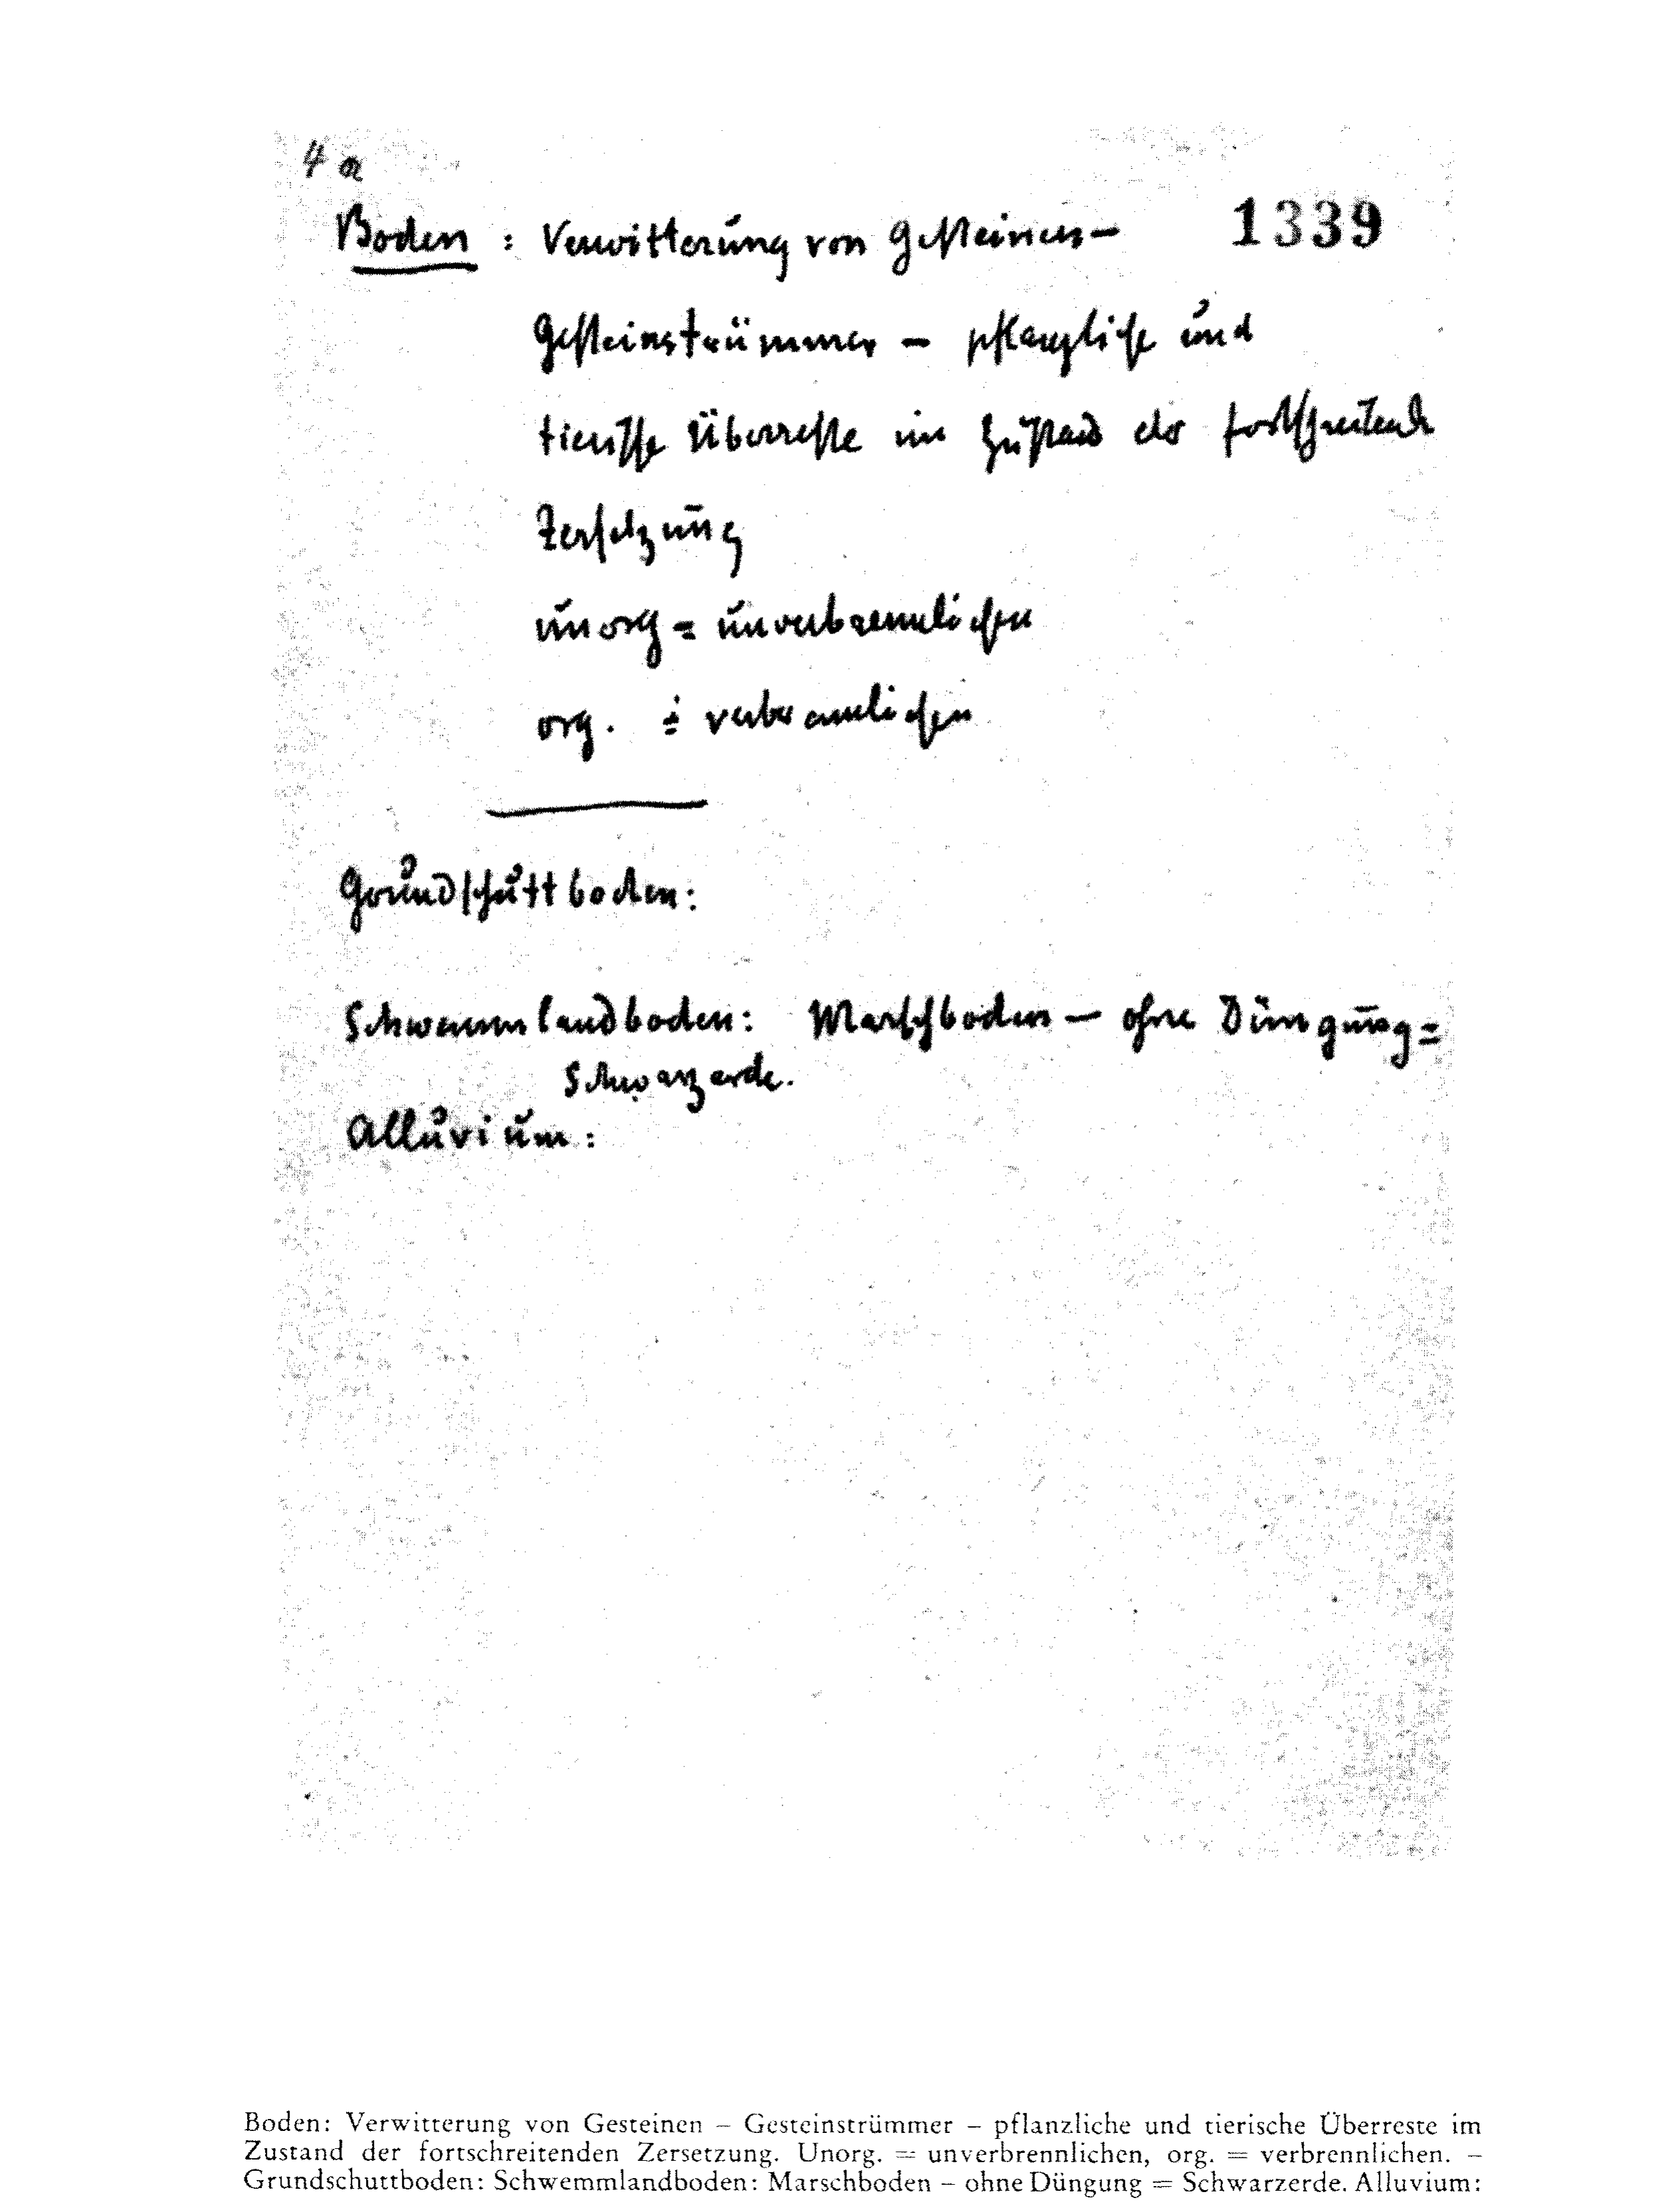 4a
Boden : Verwitterung von Gesteinen – 1339
Gesteinstrümmer – pflanzliche und
tierische Überreste im Zustand der fortschreitende
Zersetzung
unorg = unverbrennlichen
org. = verbrennlichen
Grundschuttboden:
Schwemmlandboden: Marschboden – ohne Düngung =
Schwarzerde.
Alluvium:
Boden: Verwitterung von Gesteinen – Gesteinstrümmer – pflanzliche und tierische Überreste im
Zustand der fortschreitenden Zersetzung. Unorg. = unverbrennlichen, org. = verbrennlichen. –
Grundschuttboden: Schwemmlandboden: Marschboden – ohne Düngung = Schwarzerde. Alluvium: